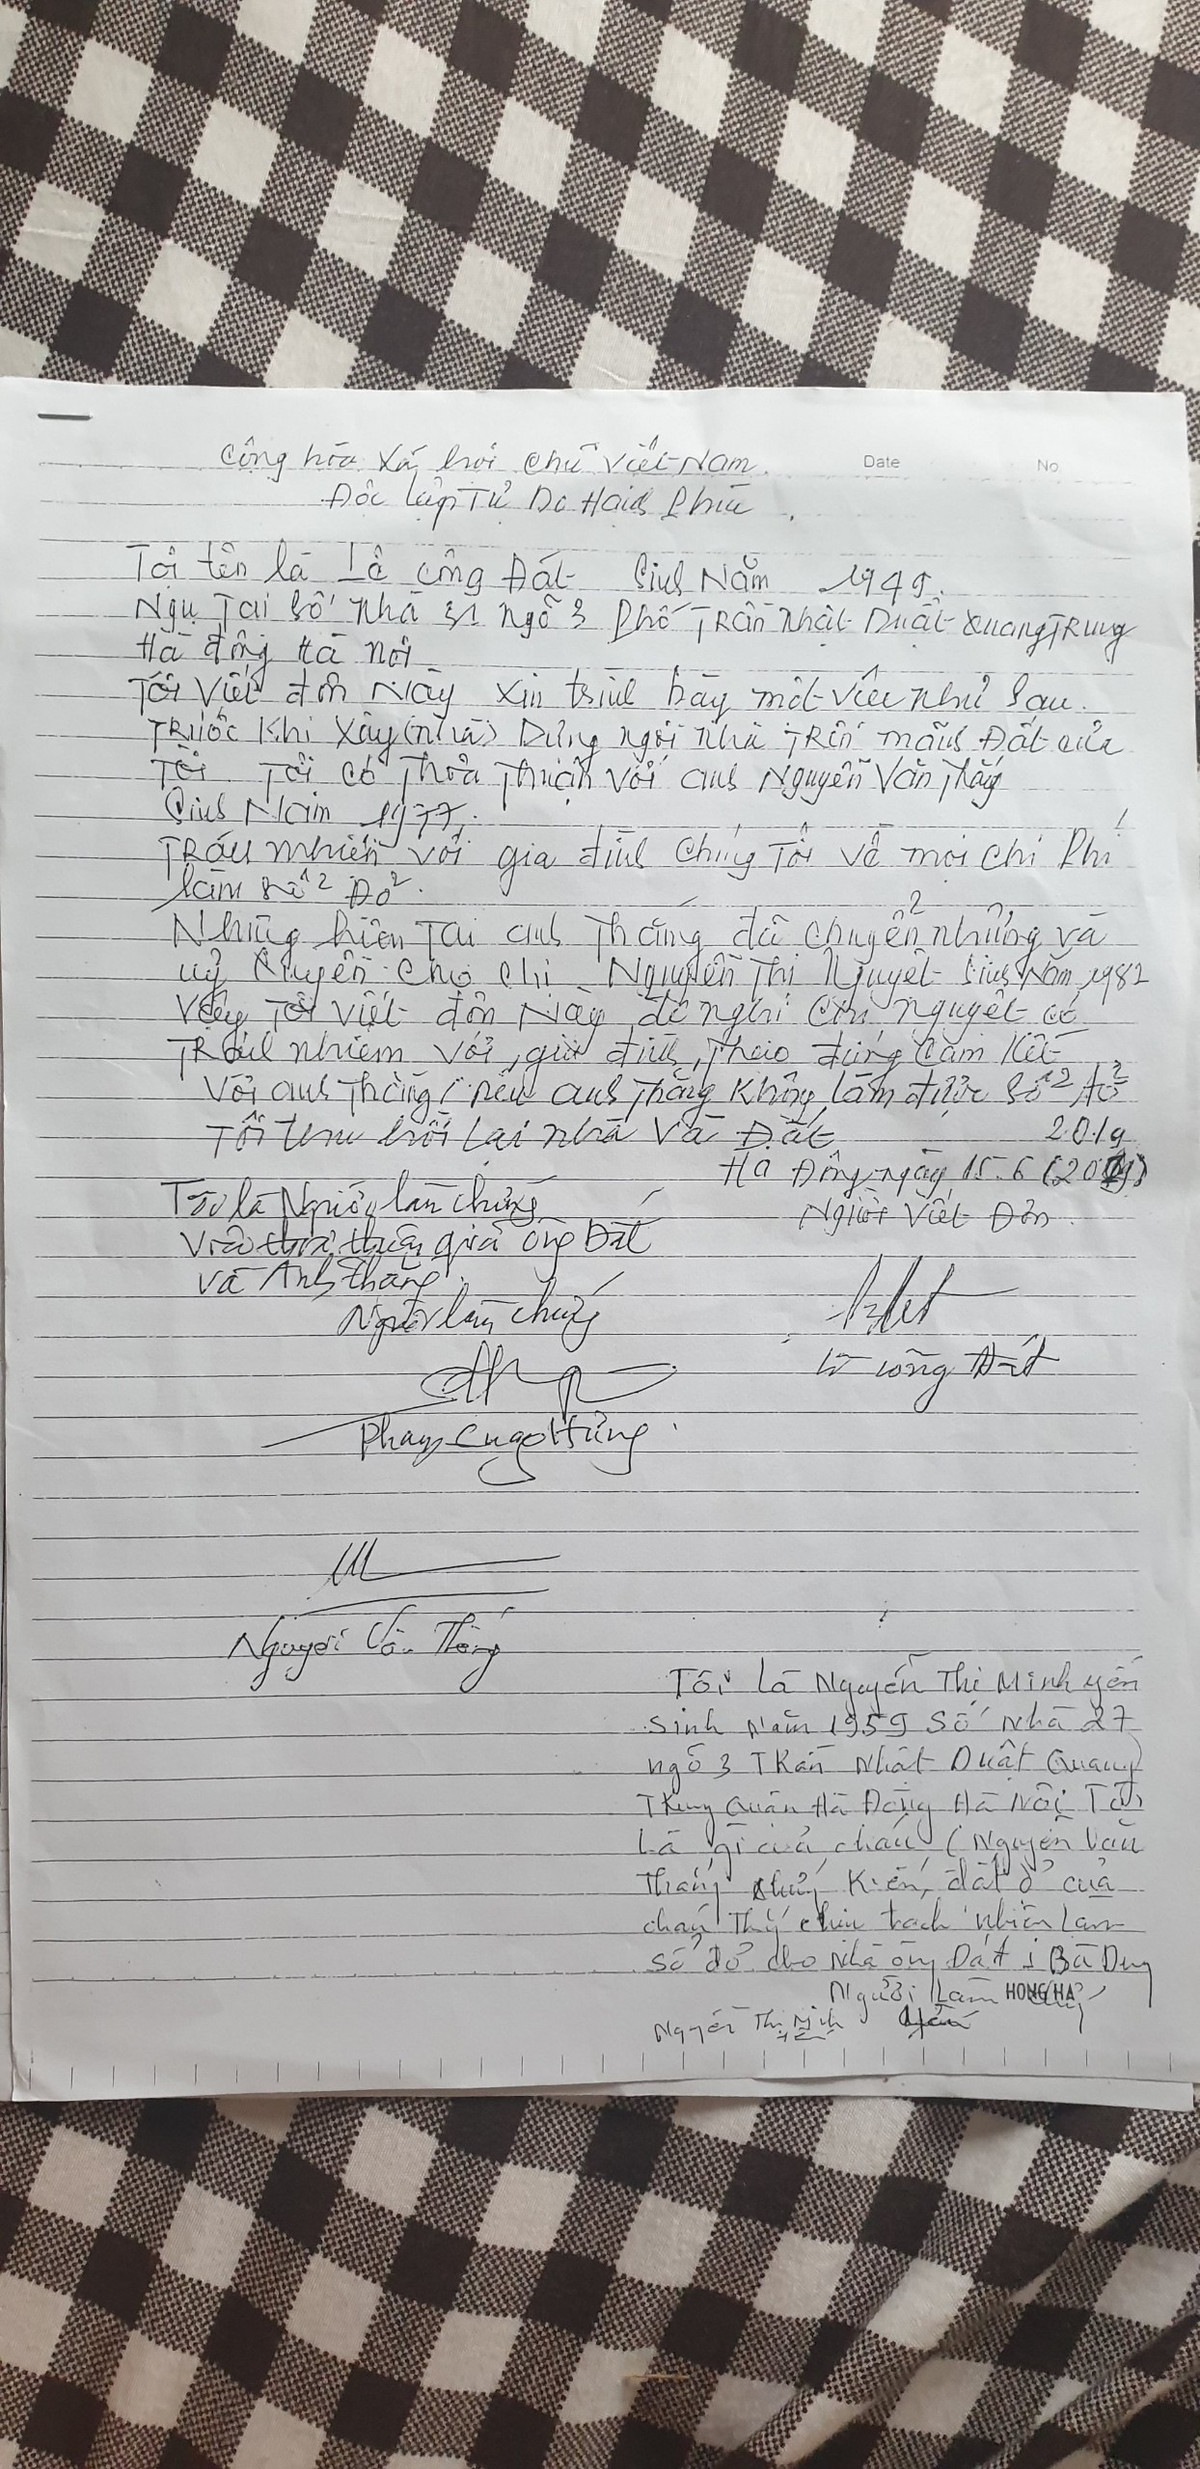 Cộng hòa Xã hội Chủ Việt Nam.
Date
No
Độc lập Tự Do Hạnh Phúc
Tôi tên là Lê Công Đất Sinh Năm 1949.
Ngụ Tại Số nhà 31 ngõ 3 Phố Trần Nhật Duật Quang Trung
Hà đông Hà nội
Tôi Viết đơn Này xin trình bày một việc như sau.
Trước Khi Xây (nhà) Dựng ngôi nhà Trên mảnh Đất của
Tôi. Tôi có Thỏa Thuận với anh Nguyễn Văn Thắng
Sinh Năm 1977.
Trách nhiên với gia đình Chúng Tôi về mọi chi Phí
làm Sổ Đỏ.
Nhưng hiện Tại anh Thắng đã chuyển nhượng và
uỷ quyền cho chị Nguyễn Thị Nguyệt Sinh Năm 1982
Vậy Tôi Viết đơn Này đề nghị Chị nguyệt có
Trách nhiêm với gia đình Theo đúng Cam Kết
Với anh Thắng (nếu anh Thắng Không làm được Sổ đỏ
Tôi thu hồi Lại nhà Và Đất
2019
Hà Đông ngày 15.6 (2019)
Tôi là Người làm chứng
Người Viết Đơn
Việc thỏa thuận giữa ông Đất
và Anh Thắng
Người làm chứng
Lê Công Đất
Phạm Hùng
Nguyễn Văn Thắng
Tôi là Nguyễn Thị Minh yến
Sinh Năm 1959 Số Nhà 27
ngõ 3 Trần Nhật Duật Quang
Trung Quận Hà Đông Hà Nội Tôi
Là gì của cháu (Nguyễn Văn
Thắng chứng Kiến đất ở của
cháu chịu trach nhiên Làm
sổ đỏ cho Nhà ông Đất + Bà Dung
Người Làm chứng
HONG HA
Nguyễn Thị Minh Yến